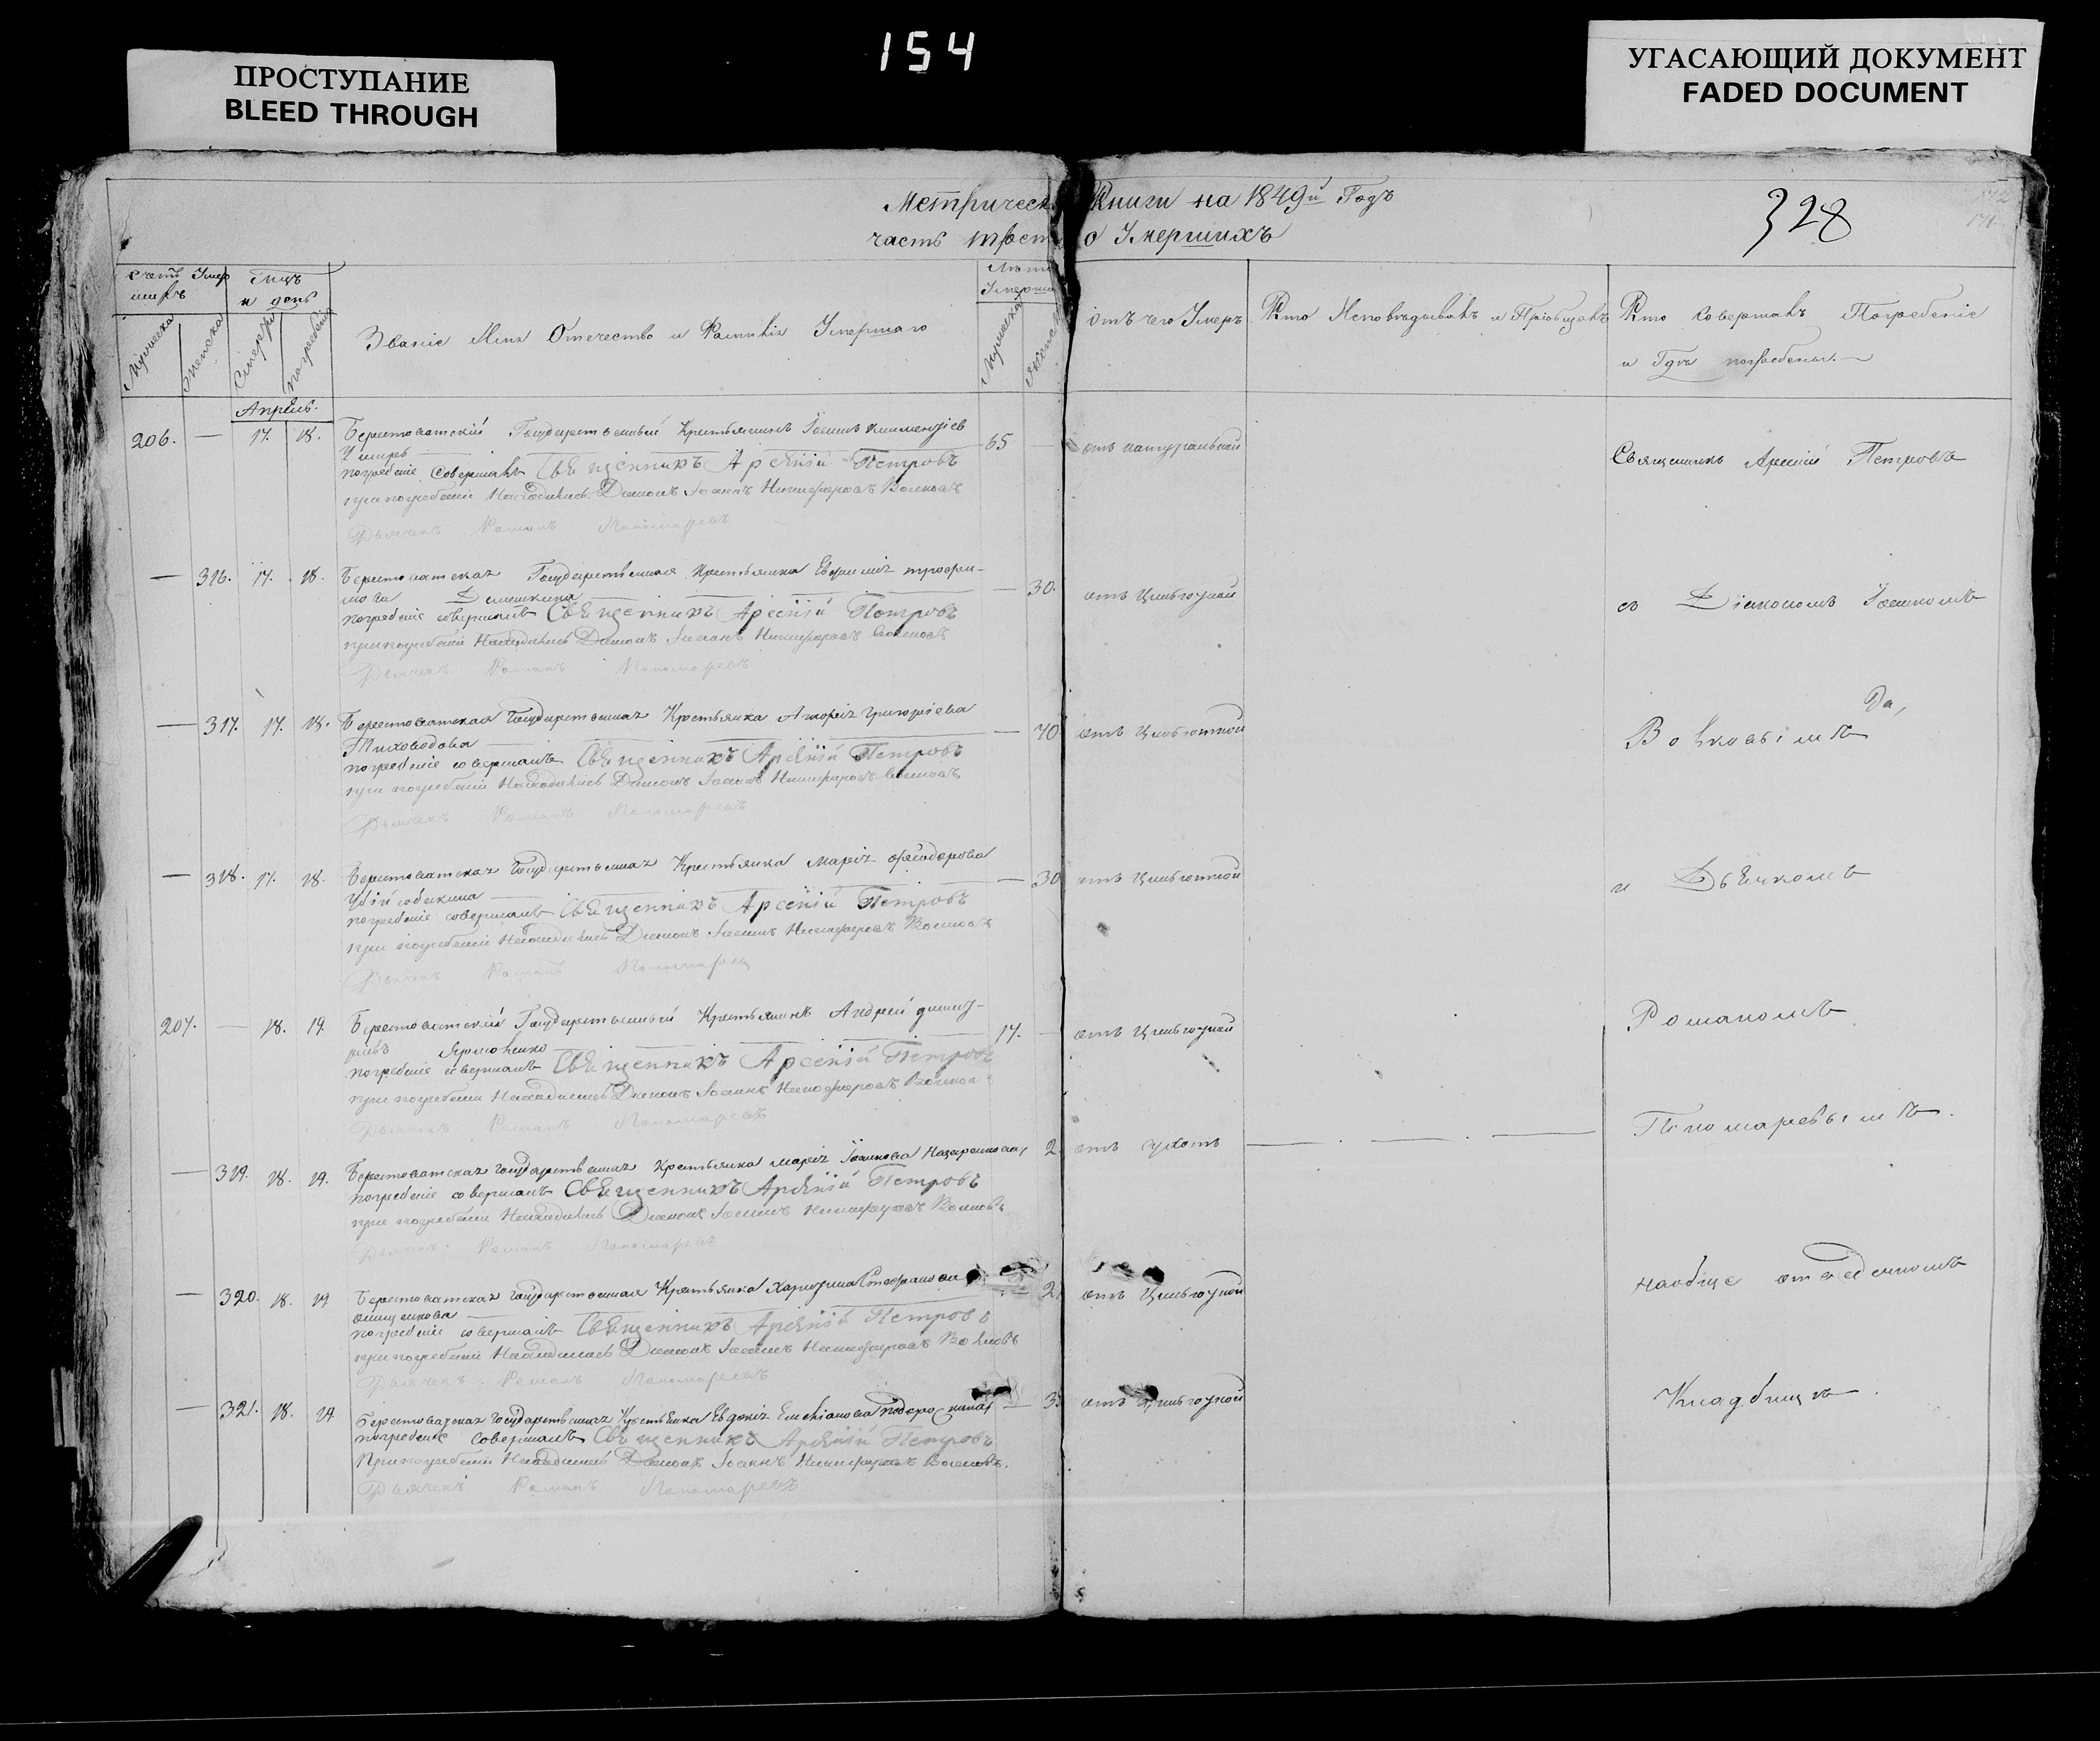 154
ПРОСТУПАНИЕ
BLEED THROUGH
УГАСАЮЩИЙ ДОКУМЕНТ
FADED DOCUMENT
Метрическ Книги на 1849й Годъ
328
часть о Умершихъ
Мужеска
Женска
и день
погребенія
Званіе Имя Отечество и Фамилія Умершаго
Отъ чего Умеръ
Кто Исповѣдывалъ и Пріобщалъ
Кто Совершалъ Погребеніе
и Гдѣ погребены.
Апрѣль.
206. — 17. 18. Берестоватскій Государственный Крестьянинъ Іоаннъ
65
отъ натуральной
погребеніе Совершалъ Священникъ Арсеній Петровъ
при погребеніи Находились Діяконъ Іоаннъ Никифоровъ Волковъ
Дьячекъ Романъ Пономаревъ
Священникъ Арсеній Петровъ
— 316. 17. 18. Берестоватская Государственная Крестьянка Евфимія Трофи-
мова
— 30.
отъ Цынготной
погребеніе совершалъ Священникъ Арсеній Петровъ
при погребеніи Находились Діяконъ Іоаннъ Никифоровъ Волковъ
Дьячекъ Романъ Пономаревъ
съ Діакономъ Іоанномъ
— 317. 17. 18. Берестоватская Государственная Крестьянка Григоріева
Тиховодова
— 70
отъ Цынготной
погребеніе совершалъ Священникъ Арсеній Петровъ
при погребеніи Находились Діяконъ Іоаннъ Никифоровъ Волковъ
Дьячекъ Романъ Пономаревъ
Волковымъ
— 318. 17. 18. Берестоватская Государственная Крестьянка Марія Фяодорова
— 30
отъ Цынготной
погребеніе совершалъ Священникъ Арсеній Петровъ
при погребеніи Находились Діяконъ Іоаннъ Никифоровъ Волковъ
Дьячекъ Романъ Пономаревъ
и Дьячкомъ
207. — 18. 19. Берестоватскій Государственный Крестьянинъ Андрей
17. —
отъ Цынготной
погребеніе совершалъ Священникъ Арсеній Петровъ
при погребеніи Находились Діяконъ Іоаннъ Никифоровъ Волковъ
Дьячекъ Романъ Пономаревъ
Романомъ
Пономаревымъ.
— 319. 18. 19. Берестоватская Государственная Крестьянка Марія Іоаннова Назаренкова,
2.
отъ сухотъ
погребеніе совершалъ Священникъ Арсеній Петровъ
при погребеніи Находились Діяконъ Іоаннъ Никифоровъ Волковъ
Дьячекъ Романъ Пономаревъ
— 320. 18. 19 Берестоватская Государственная Крестьянка Харитина Стефанова
2.
отъ Цынготной
погребеніе совершалъ Священникъ Арсеній Петровъ
при погребеніи Находились Діяконъ Іоаннъ Никифоровъ Волковъ
Дьячекъ Романъ Пономаревъ
наобще отведенномъ
— 321. 18. 19 Берестоватская Государственная Крестьянка Евдокія Емеліанова
— 3.
отъ Цынготной
погребеніе совершалъ Священникъ Арсеній Петровъ
При погребеніи Находились Діяконъ Іоаннъ Никифоровъ Волковъ.
Дьячекъ Романъ Пономаревъ
Кладбищѣ.